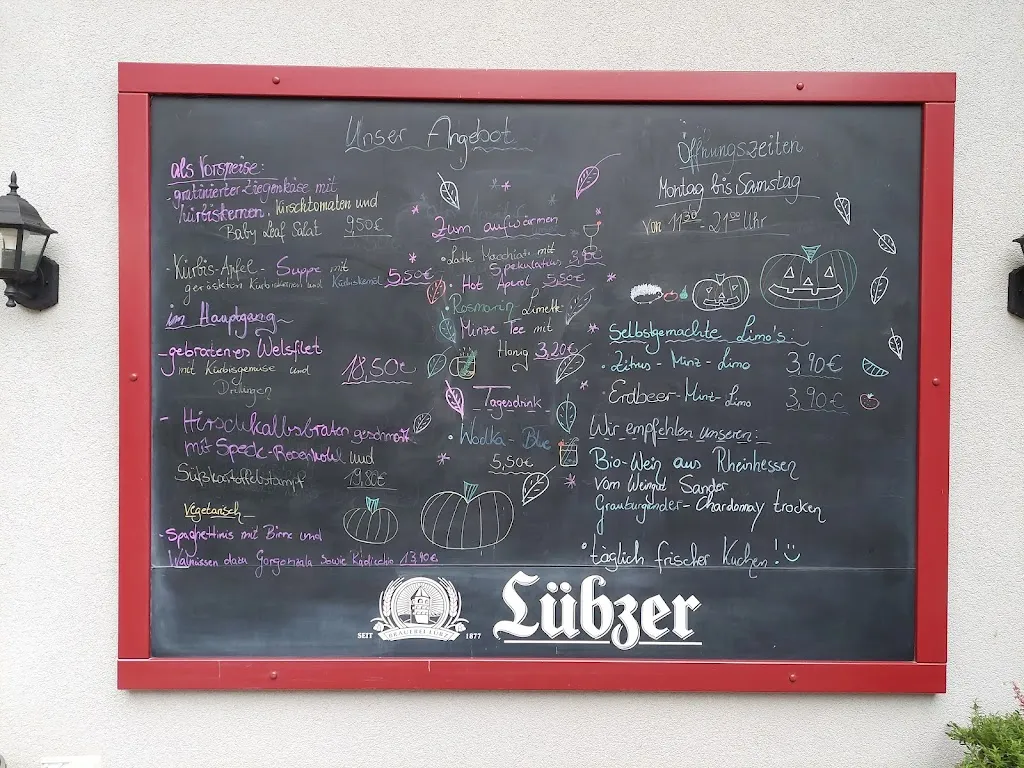 Unser Angebot
als Vorspeise:
- gratinierter Ziegenkäse mit
Kürbiskernen, Kirschtomaten und
Baby Leaf Salat 9,50€
- Kürbis-Apfel-Suppe mit
gerösteten Kürbiskernen und Kürbiskernöl 5,50€
im Hauptgang
- gebratenes Welsfilet
mit Kürbisgemüse und
Drillingen 18,50€
- Hirschkalbsbraten geschmort
mit Speck-Rosenkohl und
Süßkartoffelstampf 19,80€
Vegetarisch
- Spaghettinis mit Birne und
Walnüssen dazu Gorgonzola sowie 13,90€
Zum aufwärmen
• Latte Macchiato mit
Spekulatius
• Hot Aperol 5,50€
• Rosmarin Limette
Minze Tee mit
Honig 3,20€
Tagesdrink
• Wodka - Blue
5,50€
Öffnungszeiten
Montag bis Samstag
von 11³⁰ - 21⁰⁰ Uhr
Selbstgemachte Limo's:
• Zitrus-Minz-Limo 3,90€
• Erdbeer-Minz-Limo 3,90€
Wir empfehlen unseren:
Bio-Wein aus Rheinhessen
vom Weingut Sander
Grauburgunder-Chardonnay trocken
• täglich frischer Kuchen!
SEIT BRAUEREI LÜBZ 1877
Lübzer